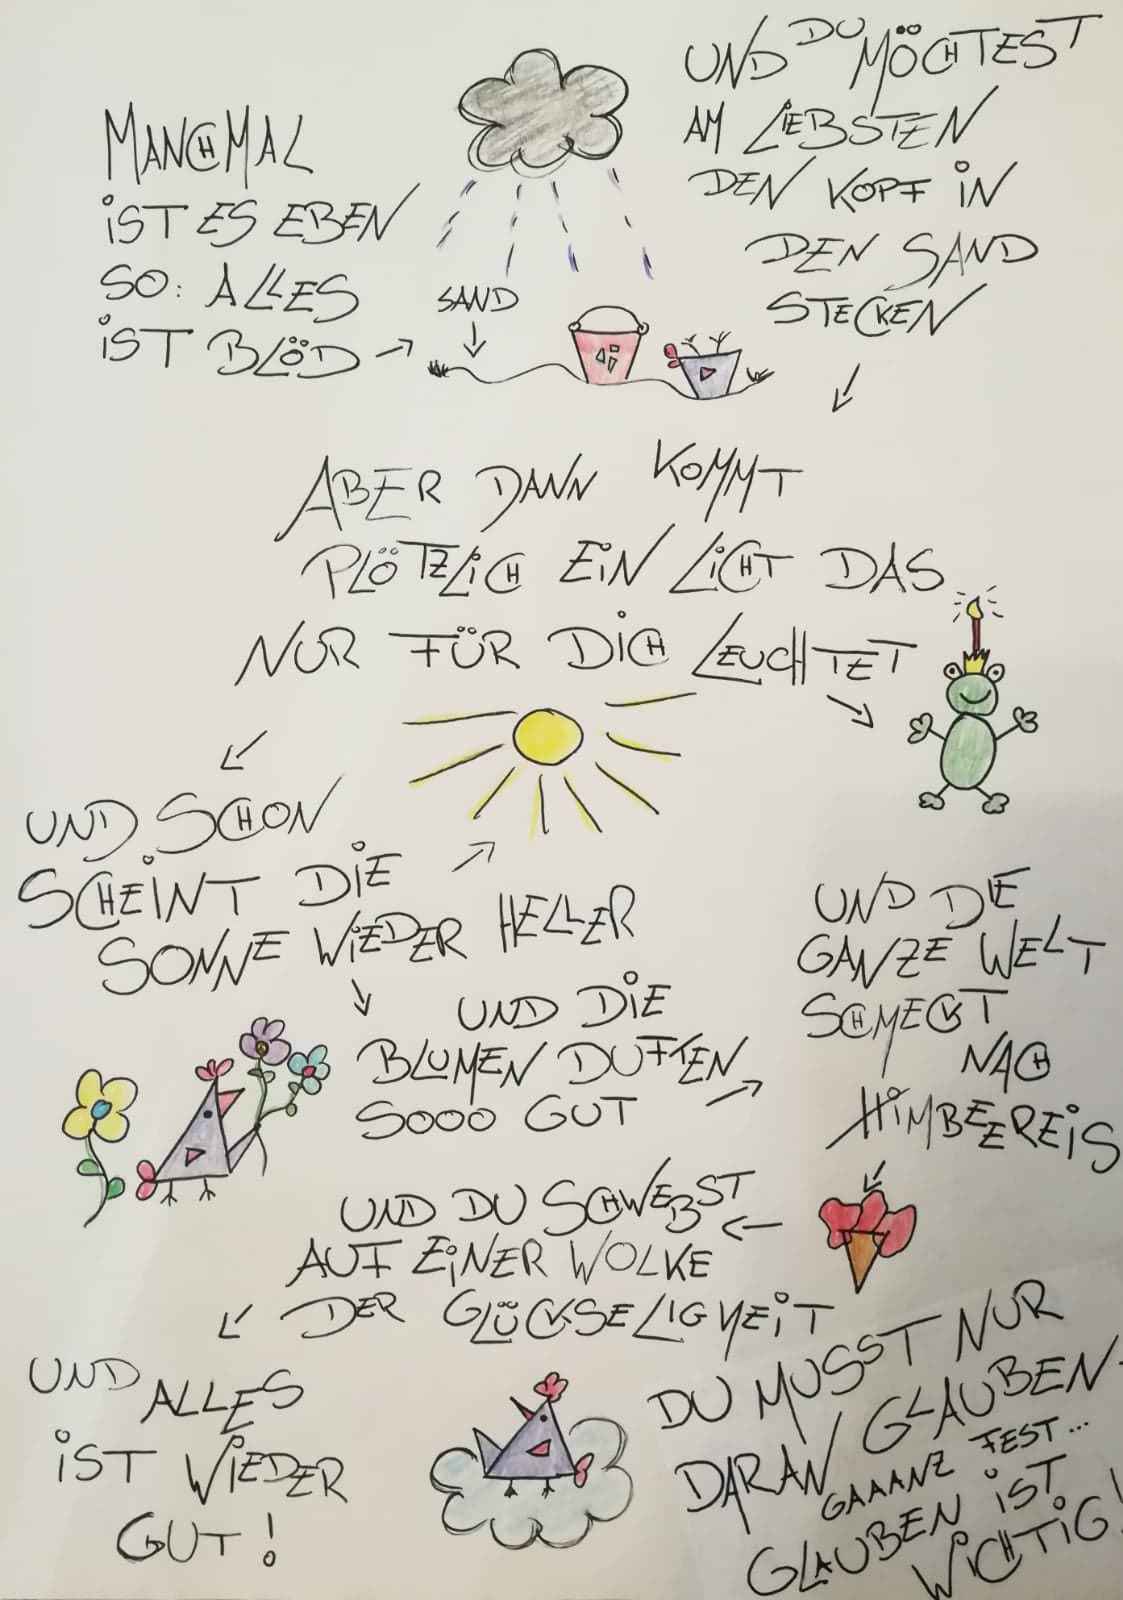 MANCHMAL
IST ES EBEN
SO: ALLES
IST BLÖD
SAND
UND DU MÖCHTEST
AM LIEBSTEN
DEN KOPF IN
DEN SAND
STECKEN
ABER DANN KOMMT
PLÖTZLICH EIN LICHT DAS
NUR FÜR DICH LEUCHTET
UND SCHON
SCHEINT DIE
SONNE WIEDER HELLER
UND DIE
BLUMEN DUFTEN
SOOO GUT
UND DIE
GANZE WELT
SCHMECKT
NACH
HIMBEEREIS
UND DU SCHWEBST
AUF EINER WOLKE
DER GLÜCKSELIGKEIT
UND ALLES
IST WIEDER
GUT!
DU MUSST NUR
DARAN GLAUBEN
GAAANZ FEST...
GLAUBEN IST
WICHTIG!